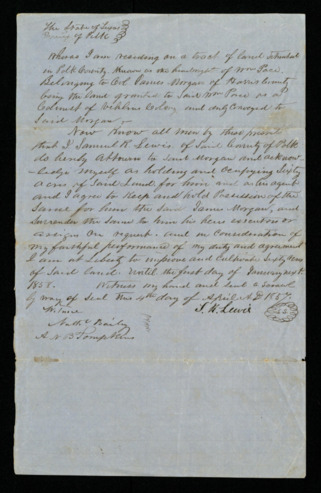 The State of Texas
County of Polk
Whereas I am residing on a tract of land situated
in Polk County Known as the headright of Wm Pace
belonging to Col James Morgan of Harris County
being the land granted to said Wm Pace as a
Colonist of Vehlins Colony and duly conveyed to
said Morgan.
Now Know all men by these presents
that I Samuel H. Lewis of said County of Polk
do hereby Attorn to said Morgan and acknow-
ledge myself as holding and occupying Sixty
acres of said land for him and as his agent
and I agree to keep and hold Possession of the
Same for him the said James Morgan, and
Surrender the same to him his heirs executors or
assigns on request. and in consideration of
my faithful performance of my duty and agreement
I am at Liberty to improve and Cultivate Sixty acres
of said land. until the first day of January next
1858. Witness my hand and seal a scrawl
by way of seal this day of April A.D. 1857.
Witness
S. H. Lewis
A B Tompkins